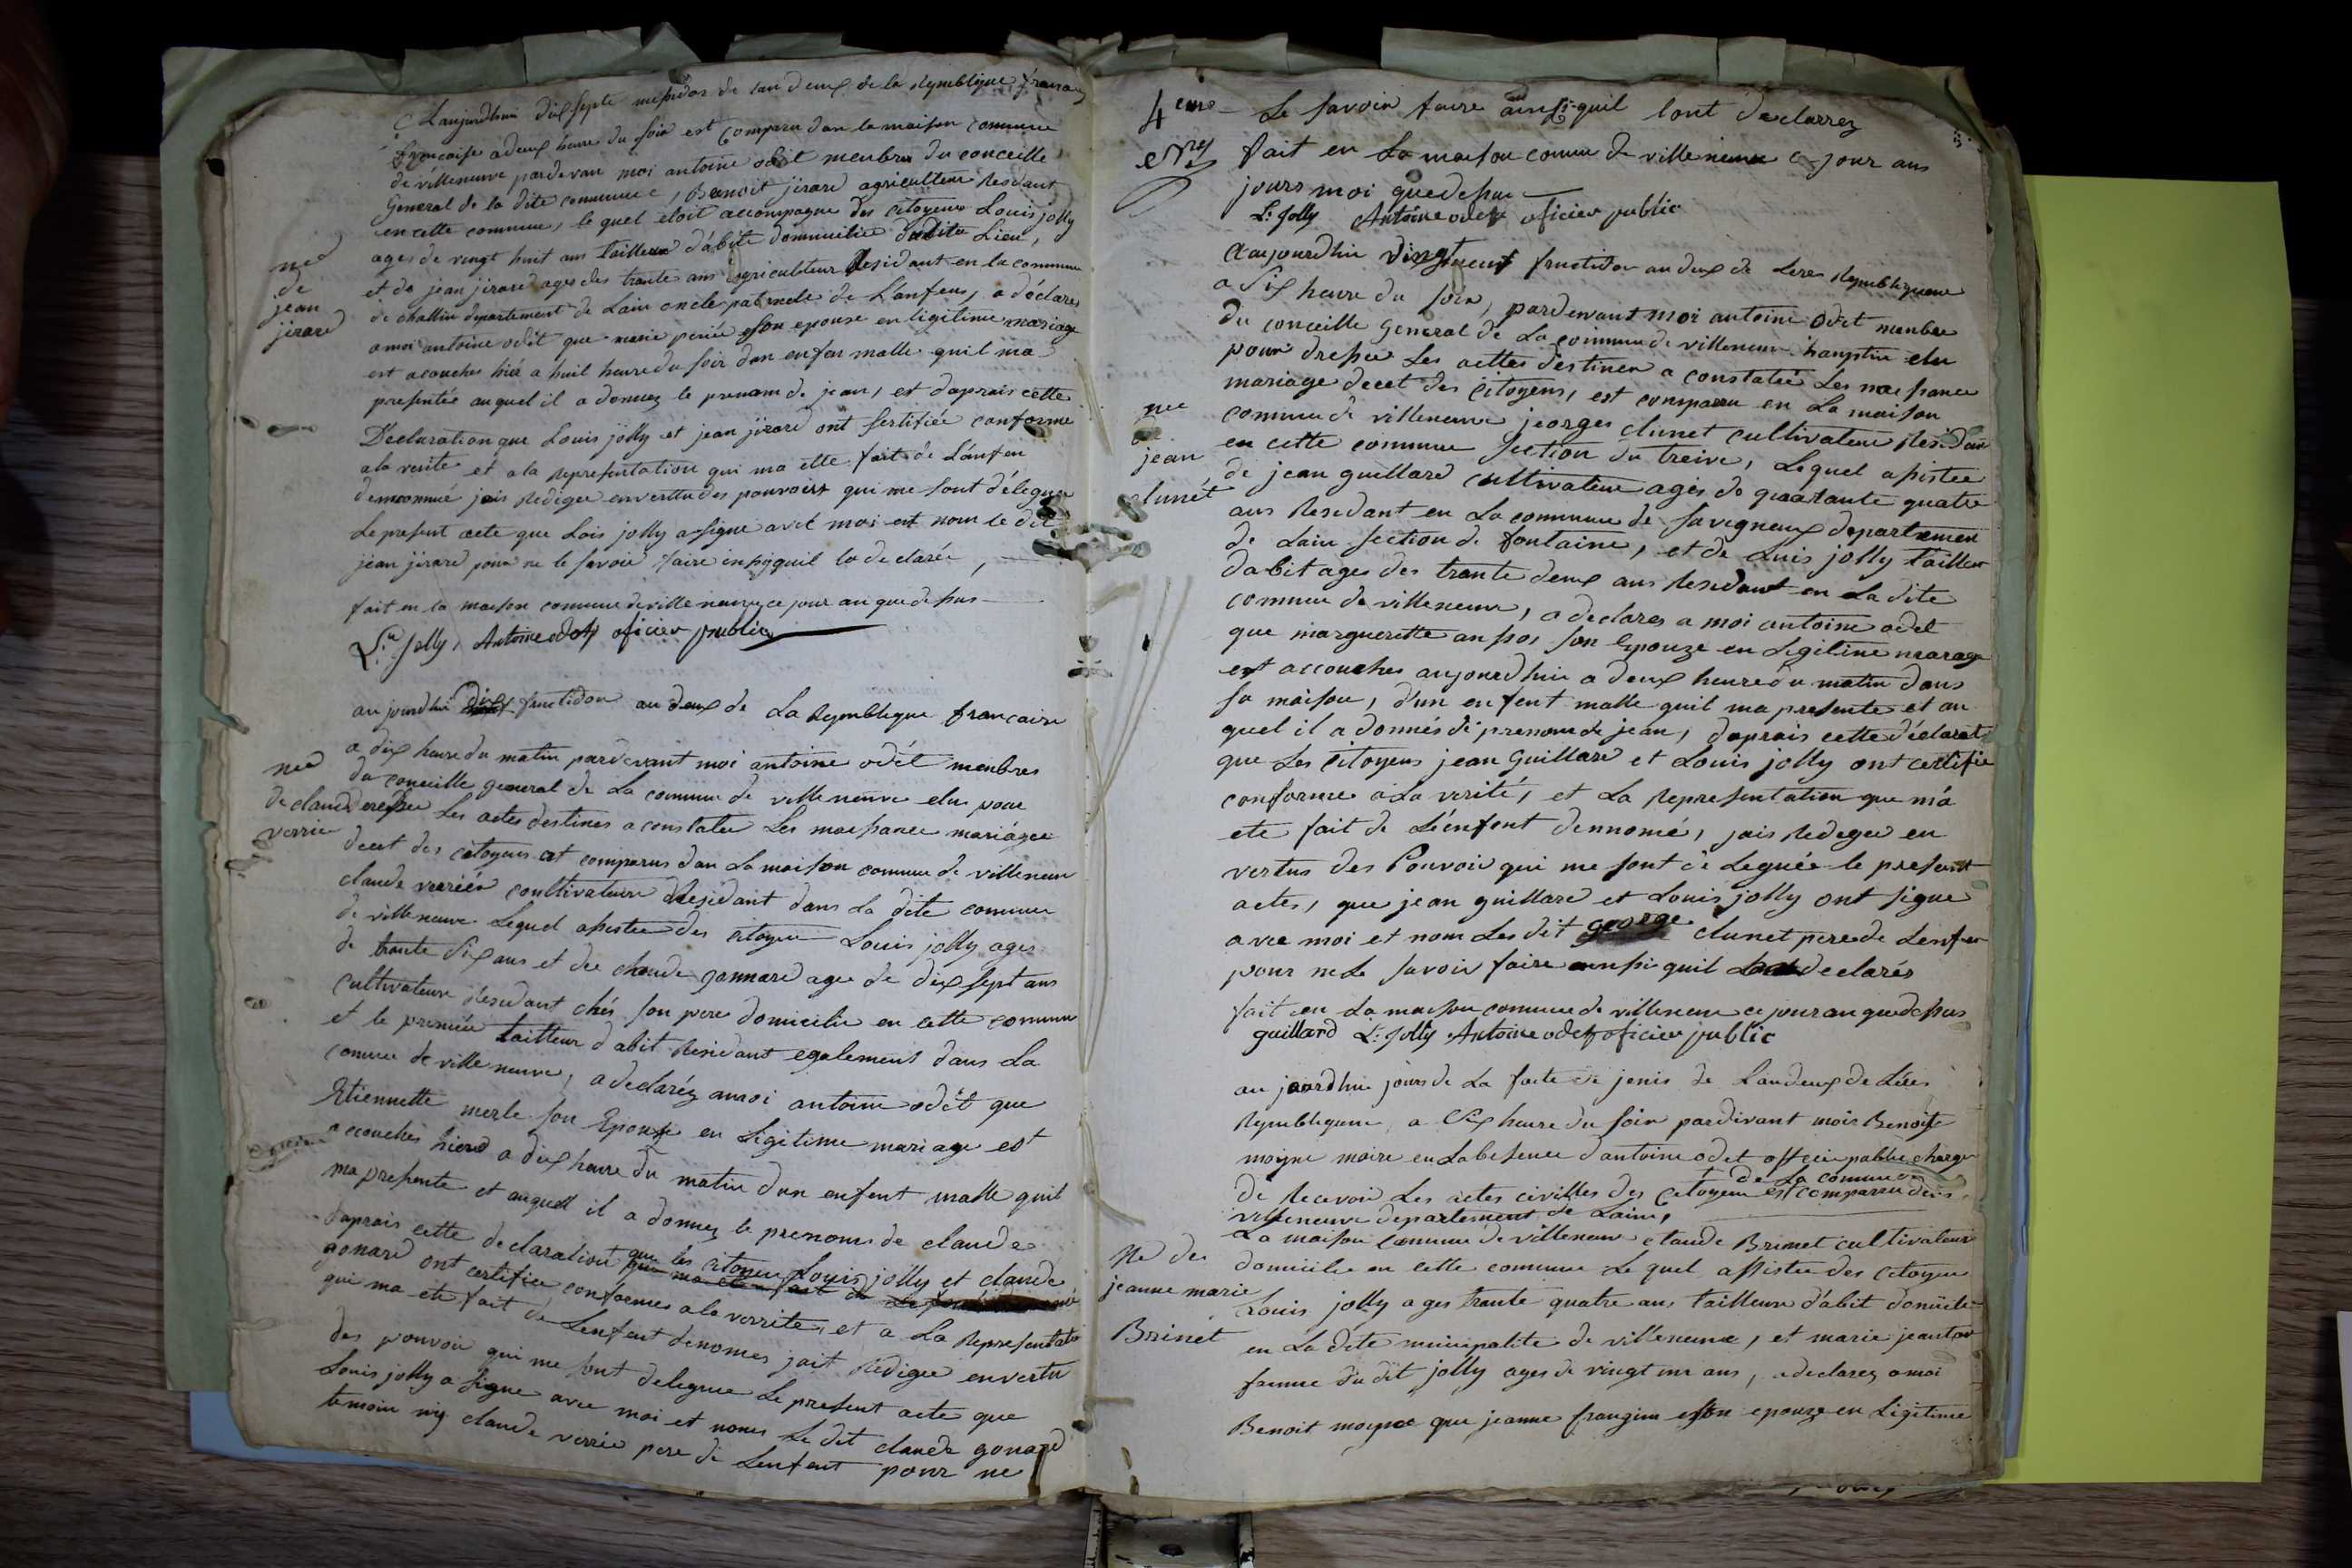 Laujourdhui dix septe mesidor de lan deux de la republique francaise
francaise a deux heure du soir est comparu dan la maison commune
de villeneuve pardevan moi antoine odit menbre du conceille
General de la dite commune, Benoit jirard agriculteur Residant
en cette commune, le quel etoit accompagne des citoyens Louis jolly
ages de vingt huit ans tailleur d'abite dommicilie dudite Lieu,
et de jean jirard ages des trante ans agriculteur Residant en la commune
de challin departement de Lain oncle patrnele de L'anfens, a déclares
a moi antoine odit que marie periée eson epouse en ligitime mariage
est acouches hié a huil heure du soir dan enfan malle quil ma
presentée auquel il a donnez le prenom de jean, et daprais cette
Déclaration que Louis jolly et jean jirard ont sertifiée conforme
a la verité et a la representation qui ma ette fait de L'anfan
denconmé jais Rediger en verttu des pouvoirs qui me sont délegue
Le present acte que Lois jolly a signe avec moi et nom le dit
jean jirard pour ne le savoir faire insy quil la declarée,
fait en la maison commune de villeneuve ce jour an que desus
Ls. Jolly, Antoine odet oficier public
ned
de
jean
jirard
aujourdhui dix fructidor an deux de La Republique francaise
a dix heure du matin pardevant moi antoine odét menbres
du conceille general de La commune de villeneuve elu pour
dresser Les actes destines a constater Les naissance mariages
decet des citoyens est comparus dan La maison commune de villeneuve
claude verriér coultivateur Residant dans La dite commune
de villeneuve Lequel assistee des citoyen Louis jolly ages
de trante six ans et de claude gonnard age de dix sept ans
cultivateur Residant chés son pere domicilie en cette commune
et le premiée tailleur d abit Residant egalement dans La
commune de villeneuve, a declaréz a moi antoine odét que
Etiennette merle son Epouze en Ligitime mariage est
accouchés hierd a dix heure du matin dun enfent malle quil
ma presente et auquel il a donnez le prenoms de claude
daprais cette declaration que les citoyen Louis jolly et claude
gonard ont certifiee conformes a la verrite, et a La Representat
qui ma ete fait de Lenfent denomes jait Rediger en vertu
des pouvoir qui me sont delegue Le present acte que
Louis jolly a signe avec moi et nomes Le dit claude gonard
temoin niy claude verrie pere de Lenfent pour ne
ned
de claude
verrie
4eme
Le savoir faire ainsi quil lont declarrez
fait en La maison commune de villeneuve ce jour ans
jours moi que desus
Ls. Jolly Antoine odet oficier public
Aujourdhui vingtneuf fructidor an deux de Lere Republiquene
a Six heure du soir, pardevant moi antoine Odet menbre
du conceille General de La commune de villeneuve elu
pour dresser Les acttes destiner a constatée Les naissance
mariage decet des citoyens, est comparu en La maison
commune de villeneuve jeorges clunet cultivateur Residan
en cette commune section du treive, Lequel assistee
de jean guillard cultivateur ages de quarante quatre
ans Residant en La commune de savigneux departemen
de Lain section de fontaine, et de Luis jolly tailleur
dabit ages des trante deux ans Residant en La dite
commune de villeneuve, a declares a moi antoine odet
que marguerette anpos son Epouze en Legitime marage
est accouches aujourdhui a deux heure du matin dans
sa maison, d'un enfent malle quil ma presente et au
quel il a donnés di prenom de jean, daprais cette déclarat
que Les citoyens jean Guillard et Louis jolly ont certifie
conforme a La verité, et La Representation que m'a
ete fait de Léenfent dennomé, jais Rediger en
vertus des Pouvoir qui me sont de Leguée le present
actes, que jean guillard et Louis jolly ont signe
avec moi et nom Les dit george clunet pere de Lenfan
pour ne Le savoir faire ainsi quil declarés
fait en La maison commune de villeneuve ce jour an que desus
guillard Ls. Jolly Antoine odet oficier public
nee
de
jean
clunét
au jourdhui jours de La faite de jenis de Landeux de Lére
Republiquene a Six heure du soir pardivant mois Benoist
moyne maire en Labesence d'antoine odet officie public charge
de Recevoir Les actes civilles des citoyen de La commune
est comparru dans
villeneuve departement de Lain,
La maison commune de villeneuve claude Brunet cultivateur
domicilie en cette commune Le quel assistee des citoyen
Louis jolly ages trante quatre ans tailleur d'abit domicile
en La dite municipalite de villeneuve, et marie jeanton
famme du dit jolly ages de vingt un ans, a declarez a moi
Benoit moyne que jeanne frangine eson epouze en Ligitime
Ne de
jeanne marie
Brinét